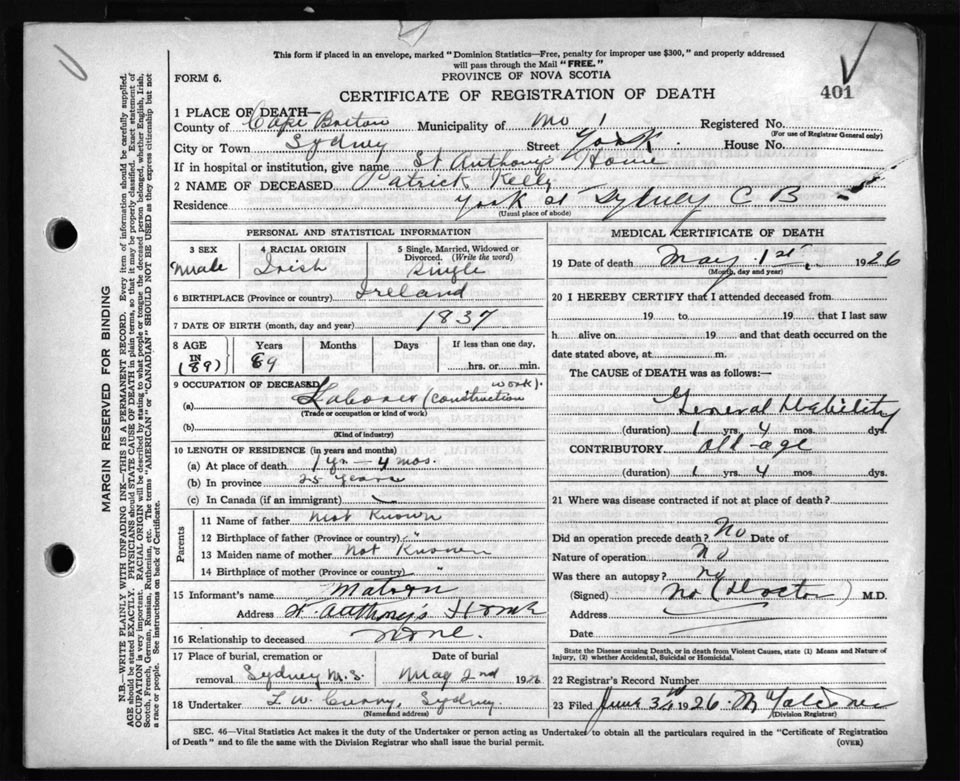 This form if placed in an envelope, marked "Dominion Statistics—Free, penalty for improper use $300," and properly addressed
will pass through the Mail "FREE."
FORM 6.
PROVINCE OF NOVA SCOTIA
401
CERTIFICATE OF REGISTRATION OF DEATH
1 PLACE OF DEATH—
County of Cape Breton Municipality of No 1 Registered No.
(For use of Registrar General only)
City or Town Sydney Street York House No.
If in hospital or institution, give name St Anthony's Home
2 NAME OF DECEASED Patrick Kelly
Residence York St Sydney C B
(Usual place of abode)
PERSONAL AND STATISTICAL INFORMATION
3 SEX Male
4 RACIAL ORIGIN Irish
5 Single, Married, Widowed or Divorced. (Write the word) Single
6 BIRTHPLACE (Province or country) Ireland
7 DATE OF BIRTH (month, day and year) 1837
8 AGE IN (89) Years 89 Months Days If less than one day, hrs. or min.
9 OCCUPATION OF DECEASED
(a) Laborer (construction work).
(Trade or occupation or kind of work)
(b)
(Kind of industry)
10 LENGTH OF RESIDENCE (in years and months)
(a) At place of death 1 yr — 4 mos.
(b) In province 25 years
(c) In Canada (if an immigrant)
Parents
11 Name of father Not Known
12 Birthplace of father (Province or country) "
13 Maiden name of mother Not Known
14 Birthplace of mother (Province or country) "
15 Informant's name Matron
Address St. Anthony's Home
16 Relationship to deceased None.
17 Place of burial, cremation or removal Sydney N.S. Date of burial May 2nd 1926
18 Undertaker L. W. Curry, Sydney.
(Name and address)
MEDICAL CERTIFICATE OF DEATH
19 Date of death May 1st, 1926
(Month, day and year)
20 I HEREBY CERTIFY that I attended deceased from
19 to 19 that I last saw
h alive on 19 and that death occurred on the
date stated above, at m.
The CAUSE of DEATH was as follows:—
General Debility
(duration) 1 yrs. 4 mos. dys.
CONTRIBUTORY old-age
(duration) 1 yrs. 4 mos. dys.
21 Where was disease contracted if not at place of death?
Did an operation precede death? No Date of
Nature of operation No
Was there an autopsy? no
(Signed) No (Doctor) M.D.
Address
Date
State the Disease causing Death, or in death from Violent Causes, state (1) Means and Nature of
Injury, (2) whether Accidental, Suicidal or Homicidal.
22 Registrar's Record Number
23 Filed June 3rd 1926
(Division Registrar)
SEC. 46—Vital Statistics Act makes it the duty of the Undertaker or person acting as Undertaker to obtain all the particulars required in the "Certificate of Registration
of Death" and to file the same with the Division Registrar who shall issue the burial permit.
(OVER)
MARGIN RESERVED FOR BINDING
N.B.—WRITE PLAINLY WITH UNFADING INK—THIS IS A PERMANENT RECORD. Every item of information should be carefully supplied.
AGE should be stated EXACTLY. PHYSICIANS should STATE CAUSE OF DEATH in plain terms, so that it may be properly classified. Exact statement of
OCCUPATION is very important. RACIAL ORIGIN will be described by stating to what people or tongue the deceased person belonged, whether English, Irish,
Scotch, French, German, Russian, Ruthenian, etc. The terms "AMERICAN" or "CANADIAN" SHOULD NOT BE USED as they express citizenship but not
a race or people. See instructions on back of Certificate.